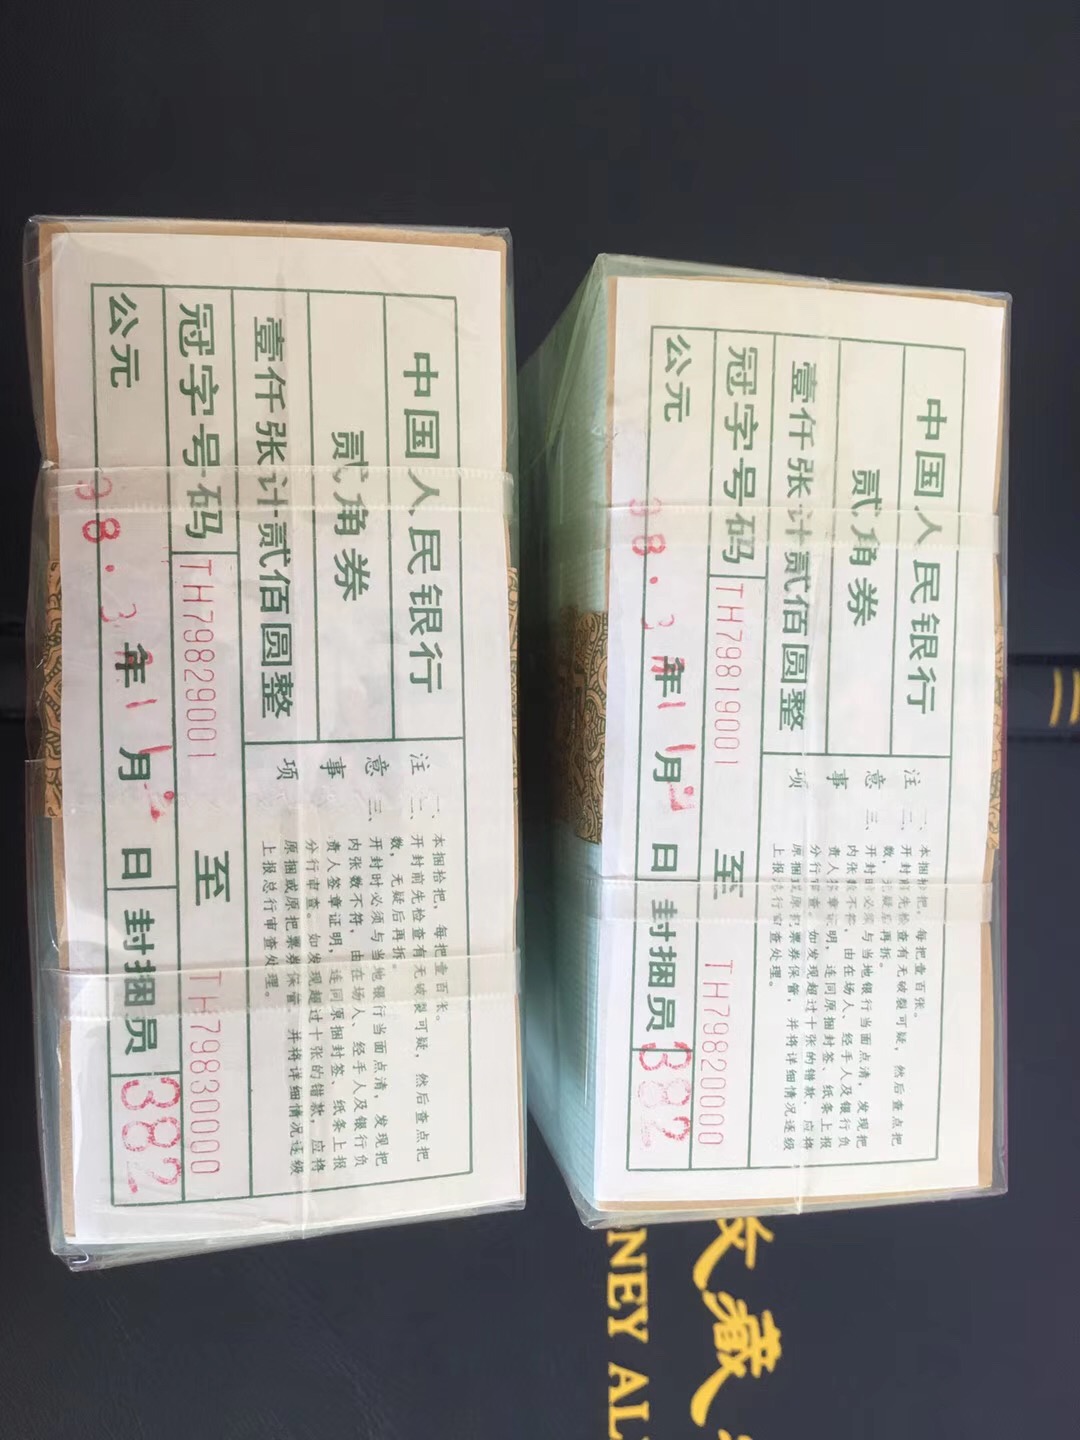 中国人民银行
贰角券
壹仟张计贰佰圆整
冠字号码 TH79829001 至 TH79830000
公元 98.3年1月 日 封捆员 382
注意事项
一、本捆拾把，每把壹百张。
二、开封前先检查有无破裂可疑，然后查点把
数，无疑后再拆。
三、开封时必须与当地银行当面点清，发现把
内张数不符，由在场人、经手人及银行负
责人签章证明，连同原捆封签、纸条上报
分行审查。如发现超过十张的错款，应将
原捆或原把票券保管，并将详细情况逐级
上报总行审查处理。
中国人民银行
贰角券
壹仟张计贰佰圆整
冠字号码 TH79819001 至 TH79820000
公元 98.3年1月 日 封捆员 382
注意事项
一、本捆拾把，每把壹百张。
二、开封前先检查有无破裂可疑，然后查点把
数，无疑后再拆。
三、开封时必须与当地银行当面点清，发现把
内张数不符，由在场人、经手人及银行负
责人签章证明，连同原捆封签、纸条上报
分行审查。如发现超过十张的错款，应将
原捆或原把票券保管，并将详细情况逐级
上报总行审查处理。
藏
NEY AL